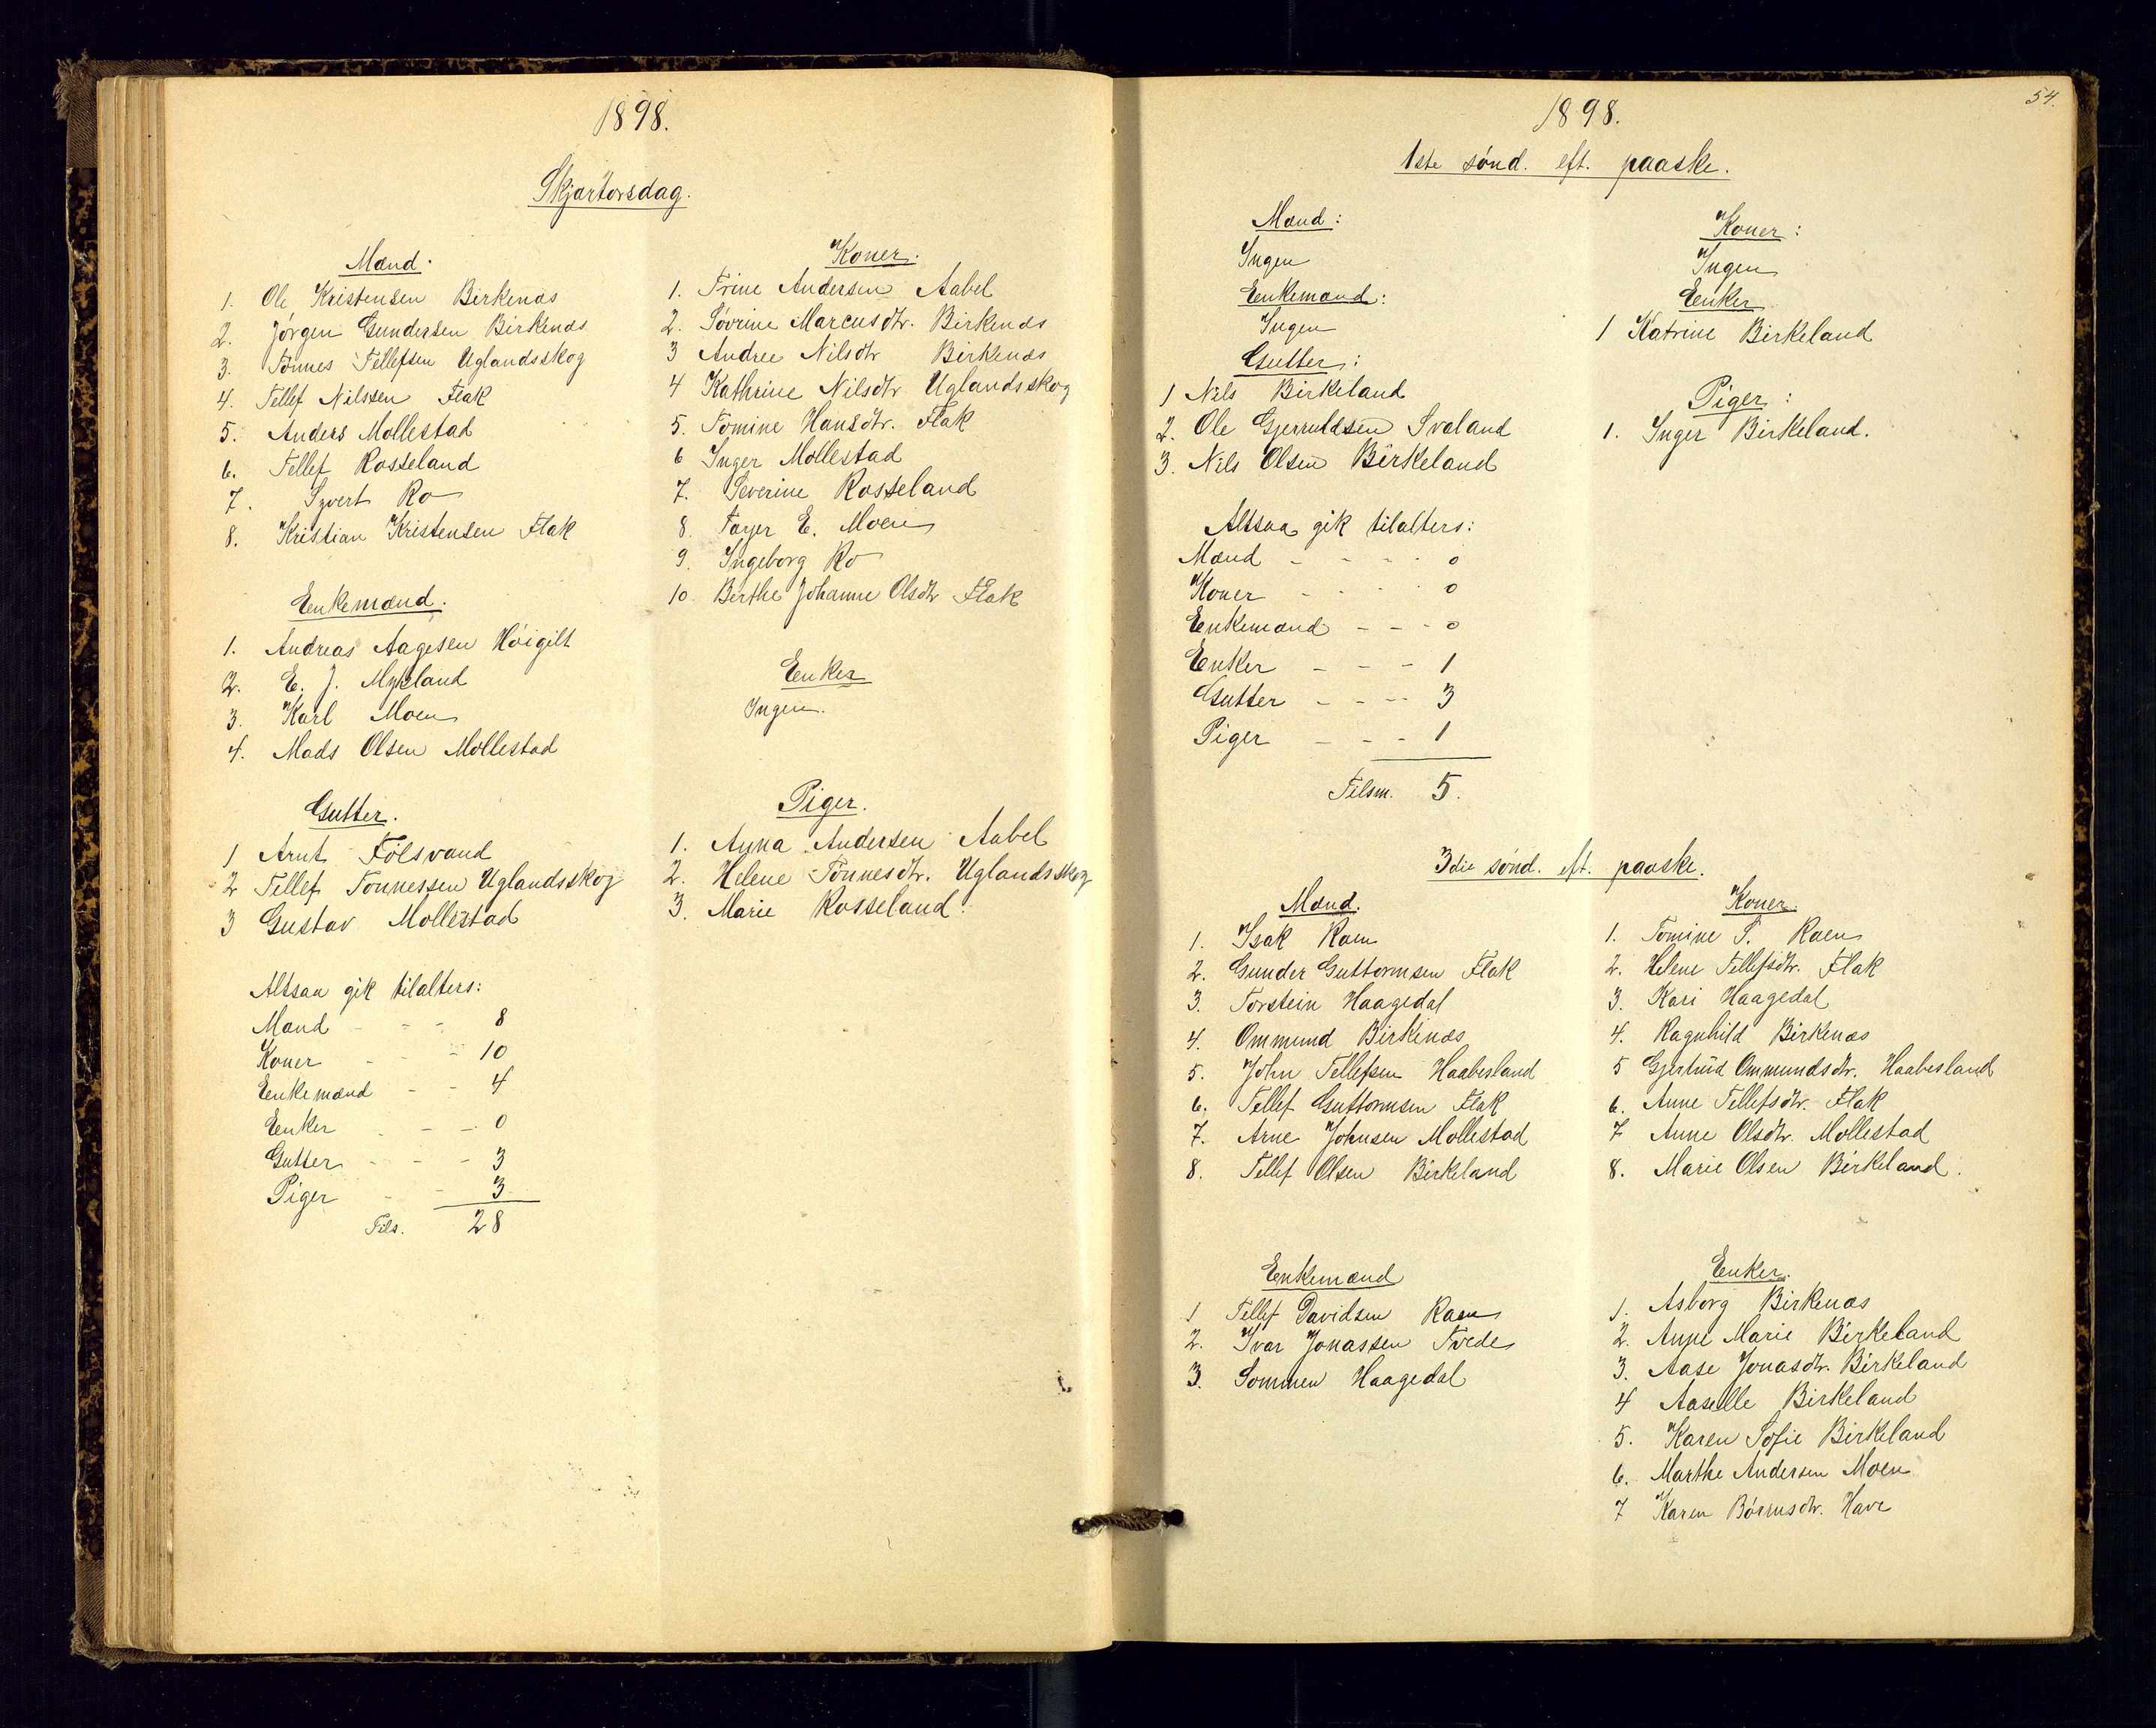 1898.
Skjærtorsdag.
Mænd.
1. Ole Kristensen Birkenæs
2. Jörgen Gundersen Birkenæs
3. Tönnes Tellefsen Uglandsskog
4. Tellef Nilssen Flak
5. Anders Mollestad
6. Tellef Rosseland
7. Syvert Ro
8. Kristian Kristensen Flak
Enkemænd.
1. Andreas Aagesen Höigilt
2. E. J. Mykland
3. Karl Moen
4. Mads Olsen Mollestad
Gutter.
1 Arnt Fölsvand
2 Tellef Tönnessen Uglandsskog
3 Gustav Mollestad
Altsaa gik tilalters:
Mænd - - - 8
Koner - - - 10
Enkemænd - - 4
Enker - - - 0
Gutter - - - 3
Piger - - 3
Tils. 28
Koner.
1. Trine Andersen Aabel
2. Sövrine Marcusdtr. Birkenæs
3 Andree Nilsdtr Birkenæs
4 Kathrine Nilsdtr Uglandsskog
5. Tomine Hansdtr. Flak
6 Inger Mollestad
7. Severine Rosseland
8. Torjer E. Moen
9. Ingeborg Ro
10. Berthe Johanne Olsdtr Flak
Enker
Ingen.
Piger.
1. Anna Andersen Aabel
2. Helene Tönnesdtr. Uglandsskog
3. Marie Rosseland.
54.
1898.
1ste sönd. eft. paaske.
Mænd:
Ingen
Enkemænd:
Ingen
Gutter:
1 Nils Birkeland
2. Ole Gjeruldsen Svaland
3. Nils Olsen Birkeland
Koner:
Ingen
Enker
1 Katrine Birkeland
Piger:
1. Inger Birkeland.
Altsaa gik tilalters:
Mænd - - - - 0
Koner - - - 0
Enkemænd - - - 0
Enker - - - 1
Gutter - - - - 3
Piger - - - 1
Tilsm. 5.
3die sönd. eft. paaske.
Mænd.
1. Isak Raen
2. Gunder Guttormsen Flak
3. Torstein Haagedal
4. Ommund Birkenæs
5. John Tellefsen Haabesland
6. Tellef Guttormsen Flak
7. Arne Johnsen Mollestad
8. Tellef Olsen Birkeland
Koner.
1. Tomine S. Raen
2. Helene Tellefsdtr. Flak
3. Kari Haagedal
4. Ragnhild Birkenæs
5 Gjertrud Ommundsdtr. Haabesland
6. Anne Tellefsdtr. Flak
7 Anne Olsdtr. Mollestad
8. Marie Olsen Birkeland.
Enkemænd
1 Tellef Davidsen Raen
2. Ivar Jonassen Tvede
3. Sommen Haagedal
Enker.
1. Asborg Birkenæs
2. Anne Marie Birkeland
3. Aase Jonasdtr. Birkeland
4 Aaselle Birkeland
5. Karen Sofie Birkeland
6. Marthe Andersen Moen
7 Karen Börrusdtr. Have